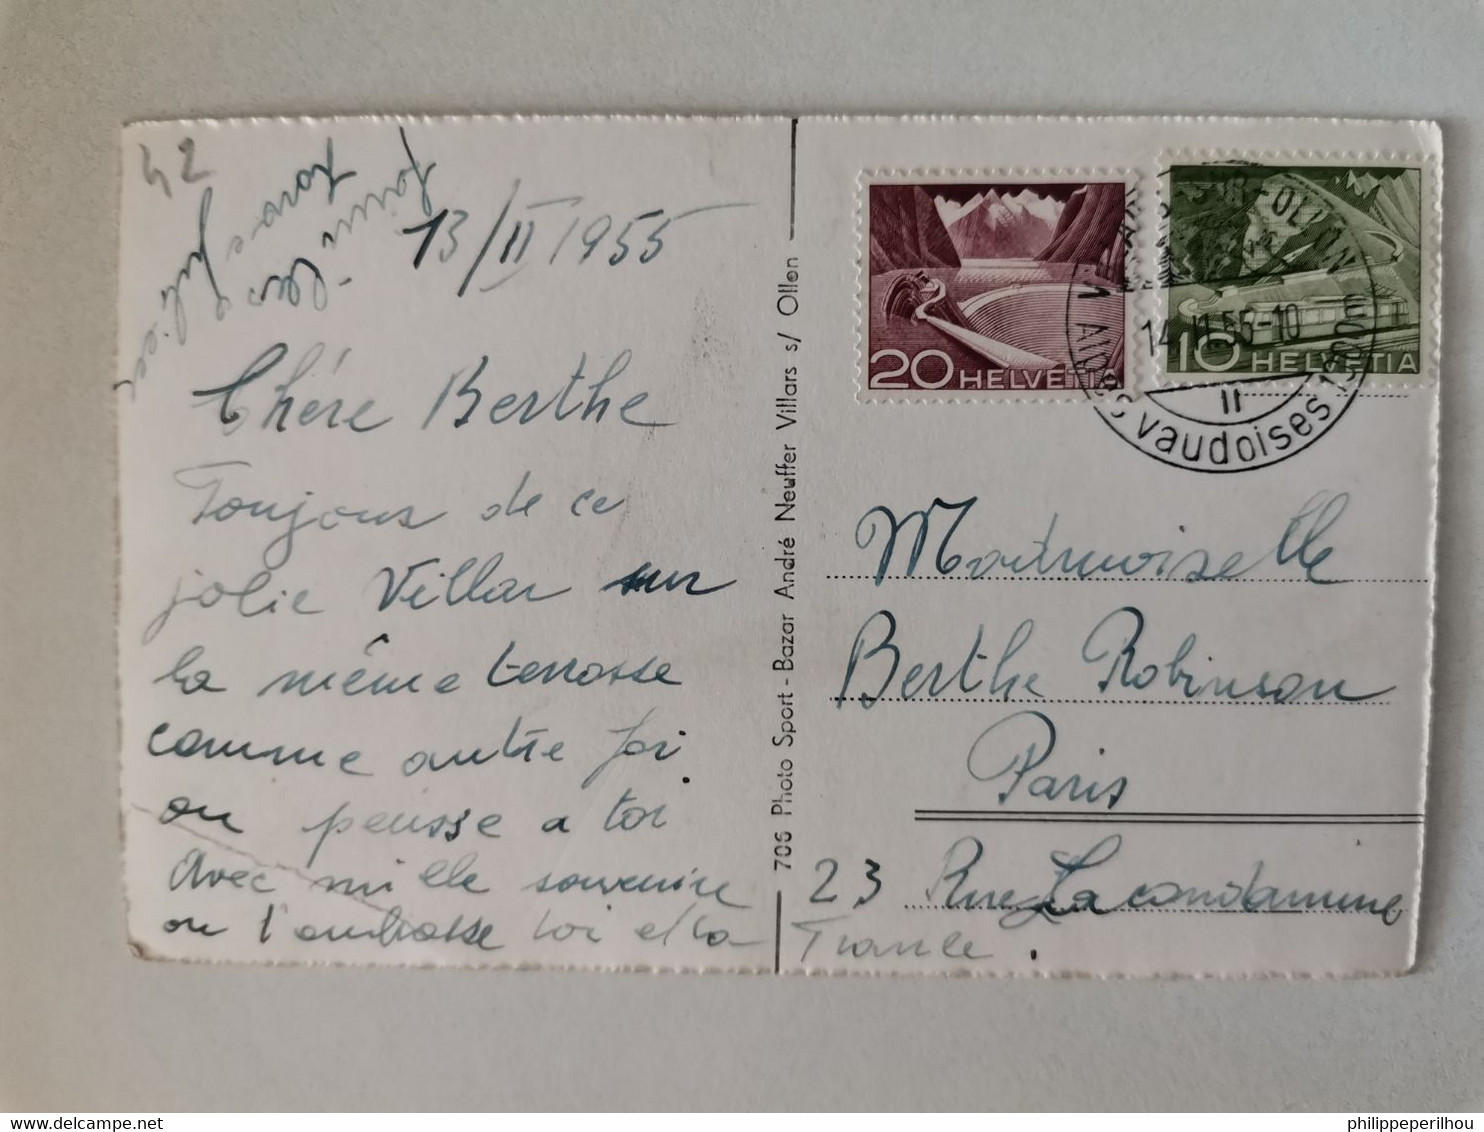 42
13/II 1955
Chére Berthe
Toujours de ce
jolie Villar sur
la même terrasse
comme autre foi
on pensse a toi.
Avec mille souvenire
on t'embrasse toi et la
706 Photo Sport - Bazar André Neuffer Villars s/ Ollon
20 HELVETIA
10 HELVETIA
VILLARS-SUR-OLLON
14.II.55-10
II
Alpes vaudoises 1300m
Mademoiselle
Berthe Robinson
Paris
23 Rue La condamine
France.
delcampe.net
philippeperilhou